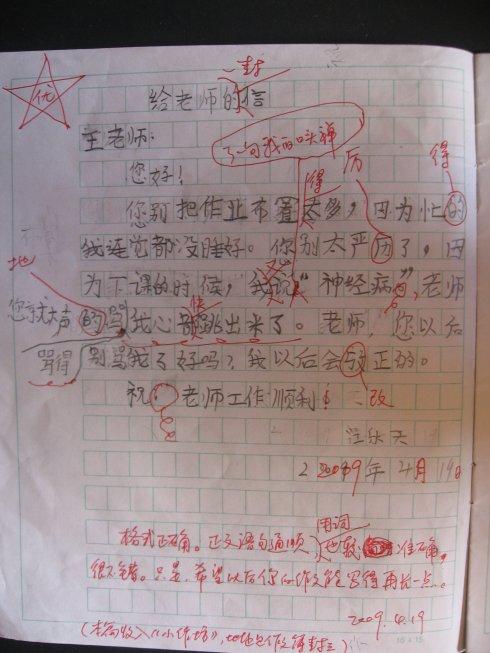 优
一封
给老师的信
王老师:
了一句我的口头禅
您好!
得 厉 得
您别把作业布置太多,因为忙的
我连觉都没睡好。你别太严历了,因
地 您
为下课的时候,我说“神经病”,老师
您就大声的骂我心都跳出来了。老师,您以后
骂得
别骂我了好吗?我以后会攺正的。
祝:老师工作顺利! 改
2009年4月19日
用词
格式正确。正文语句通顺,也较准确,
很不错。只是,希望以后你的作文能写得再长一点。
2009.4.19